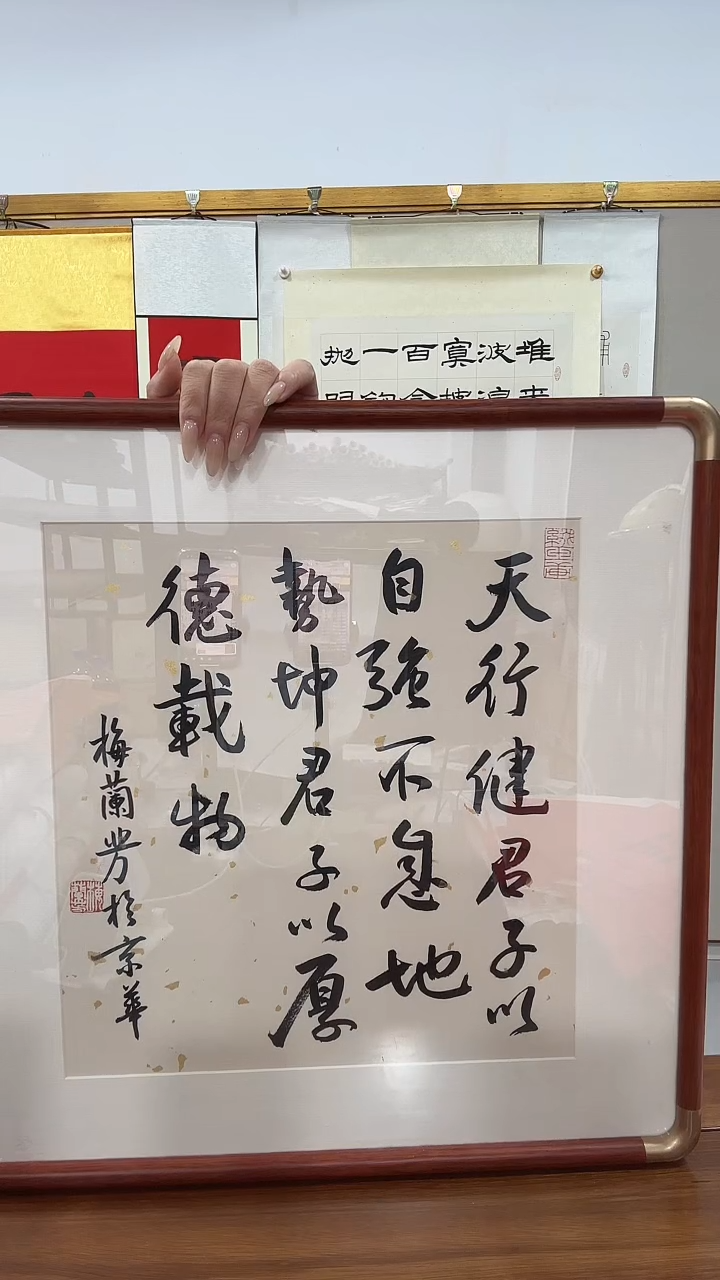 天行健君子以
自強不息地
勢坤君子以厚
德載物
梅蘭芳於京華
堆
波
寞
百
一
拋